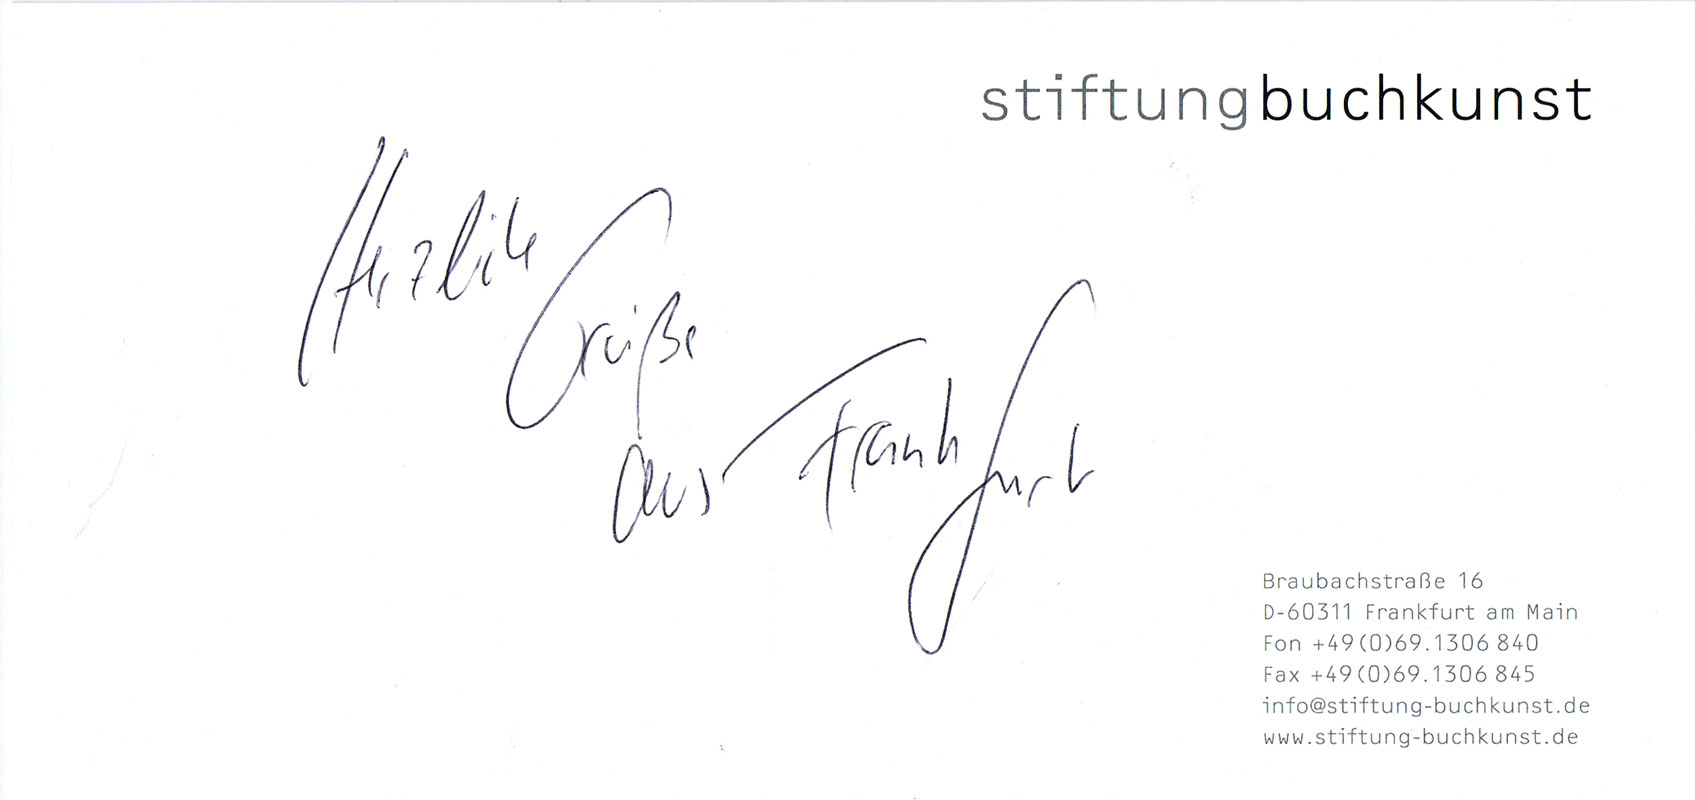 stiftungbuchkunst
Herzliche
Grüße
aus Frankfurt
Braubachstraße 16
D-60311 Frankfurt am Main
Fon +49(0)69.1306 840
Fax +49(0)69.1306 845
info@stiftung-buchkunst.de
www.stiftung-buchkunst.de